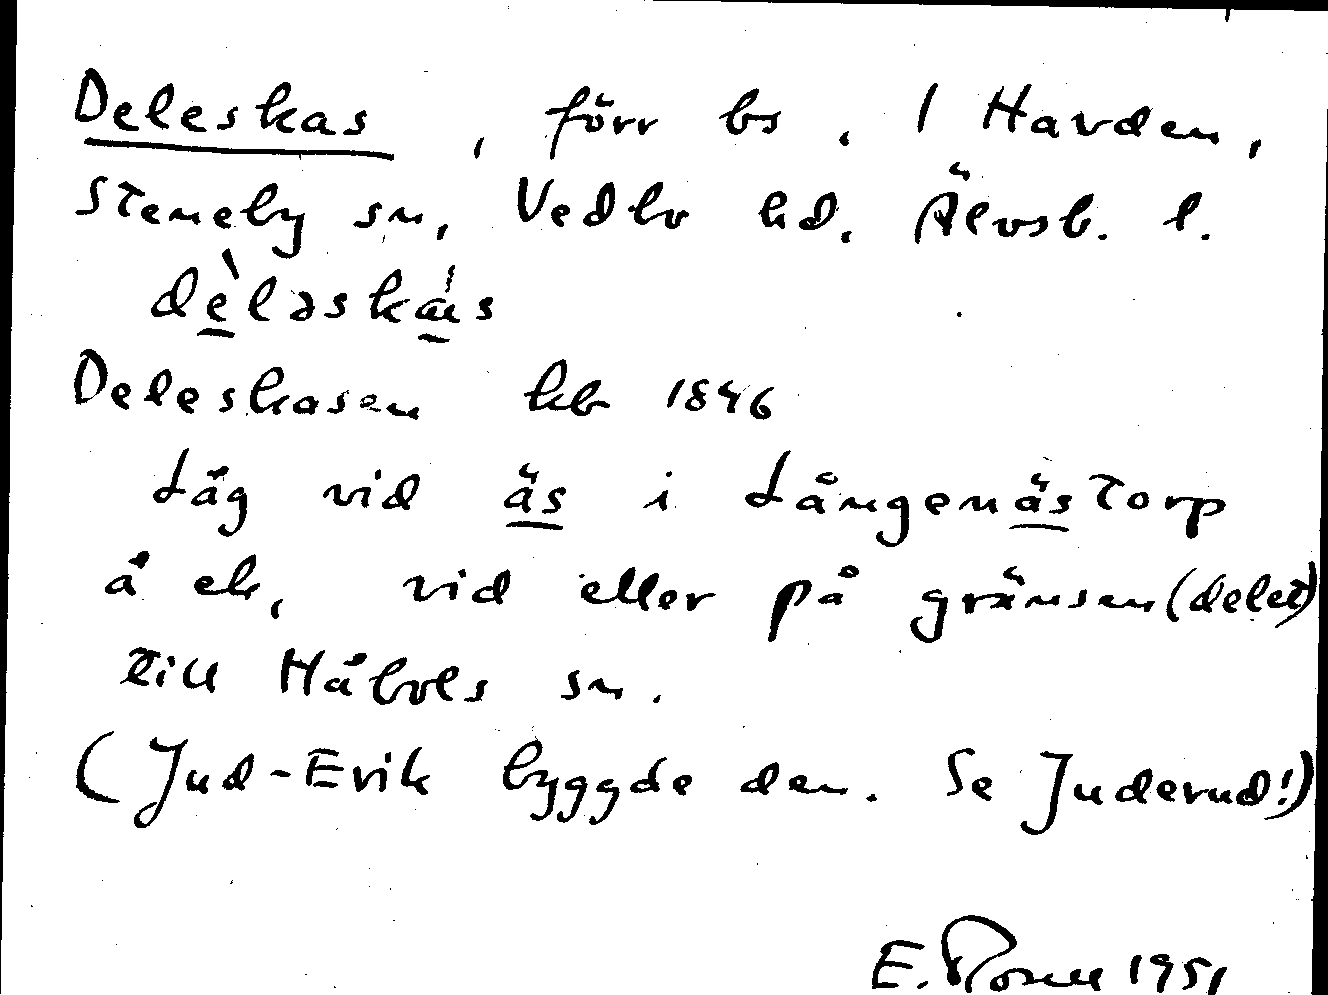 Deleskas, förr bs. / Havden,
Steneby sn, Vedbo hd. Älvsb. l.
dèləskás
Deleskasen kb 1846
Låg vid äs i Långenästorp
å ek, vid eller på gränsen (delet)
till Håbols sn.
(Jud-Erik byggde den. Se Juderud!)
E. 1951